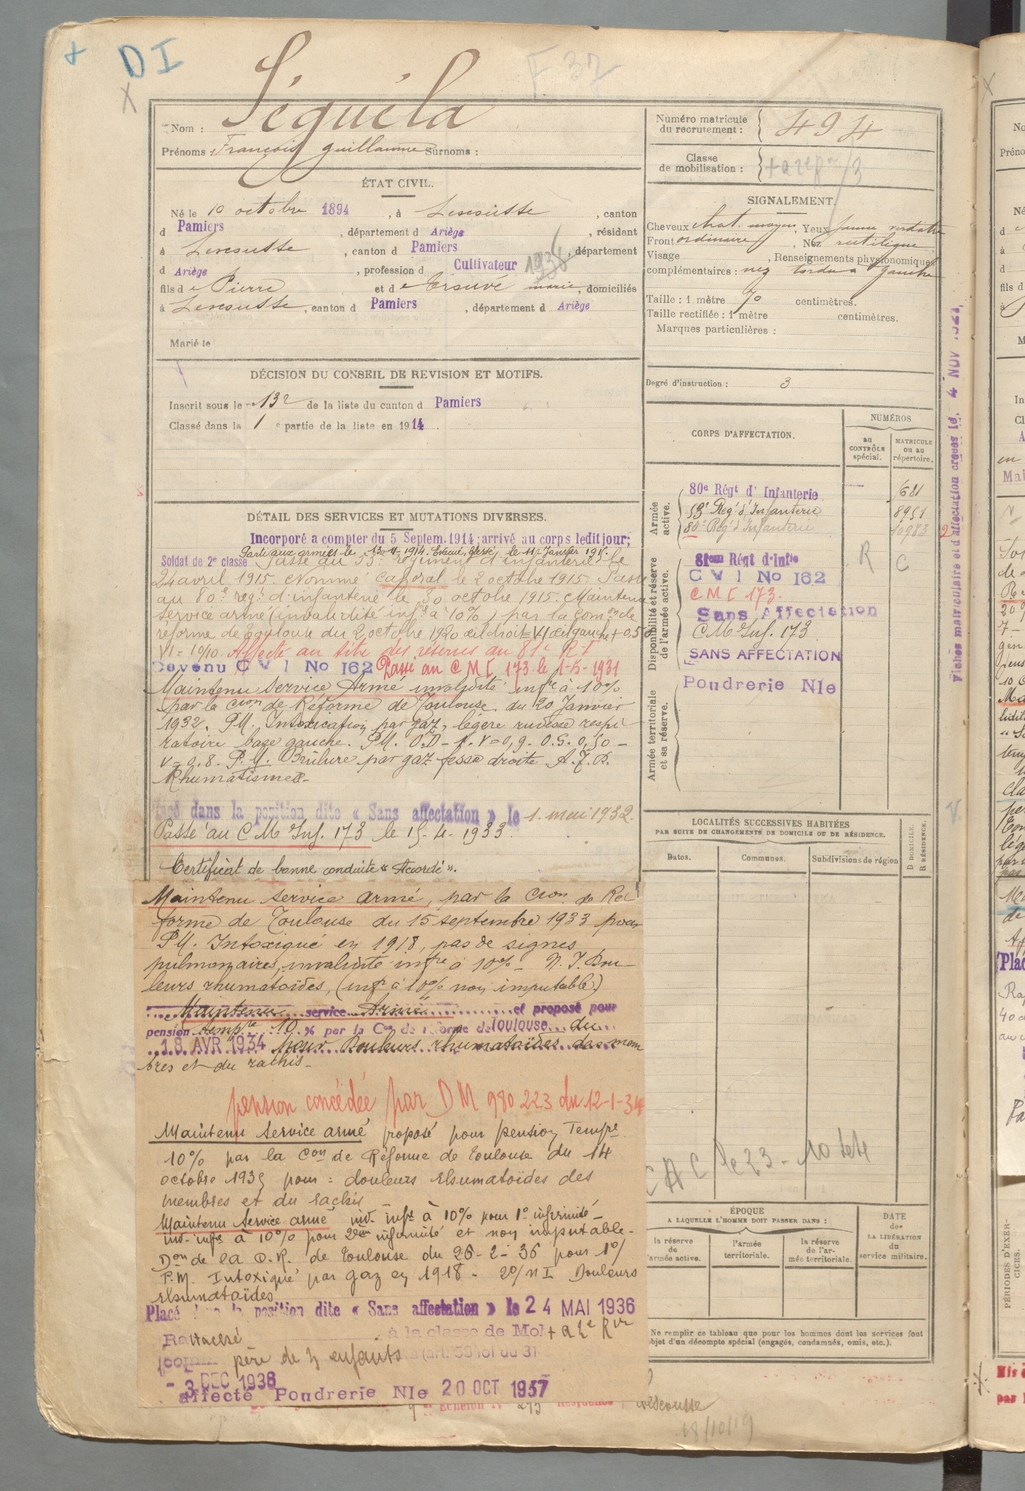 + DI
F 37
Séguéla
Nom :
Prénoms : François Guillaume Surnoms :
Numéro matricule
du recrutement : 494
Classe
de mobilisation :
ÉTAT CIVIL.
Né le 10 octobre 1894, à Lescousse, canton
d Pamiers, département d Ariège, résidant
à Lescousse, canton d Pamiers, département
d Ariège, profession d Cultivateur 1936
fils de Pierre et de marie, domiciliés
à Lescousse, canton d Pamiers, département d Ariège
Marié le
SIGNALEMENT.
Cheveux chat. moyen, Yeux jaune verdâtre
Front ordinaire, Nez rectiligne
Visage, Renseignements physionomiques
complémentaires : nez tordu à gauche
Taille : 1 mètre 70 centimètres.
Taille rectifiée : 1 mètre centimètres.
Marques particulières :
DÉCISION DU CONSEIL DE REVISION ET MOTIFS.
Inscrit sous le n° 132 de la liste du canton d Pamiers
Classé dans la 1e partie de la liste en 1914
Degré d'instruction : 3
CORPS D'AFFECTATION.
NUMÉROS
AU CONTRÔLE spécial.
MATRICULE OU AU répertoire.
Armée active.
80e Régt d'Infanterie 681
53e Rég' d'Infanterie 8951
80e Rég' d'Infanterie
Disponibilité et réserve de l'armée active.
81eme Régt d'Infie R C
C V I No 162
CMI 173.
Sans Affectation
CM Inf. 173
SANS AFFECTATION
Armée territoriale et sa réserve.
Poudrerie Nle
Fiches matriculaire et d'affectation créées le, 4 NOV
DÉTAIL DES SERVICES ET MUTATIONS DIVERSES.
Incorporé a compter du 5 Septem. 1914; arrivé au corps ledit jour;
Soldat de 2e classe
Passé au 53e régiment d'infanterie le
24 avril 1915. Nommé Caporal le 2 octobre 1915. Passé
au 80e reg' d'infanterie le 30 octobre 1915. Maintenu
service armé (invalidité infre à 10%) par la Comon de
réforme de Toulouse du 2 octobre 1920
Affecté au titre des réserves au 81e R I
Devenu C V I No 162 Passé au C M I 173 le 1-5-1931
Maintenu Service Armé invalidité infre à 10%
par la cion de Réforme de Toulouse du 20 Janvier
1932. P.M. Intoxication par gaz, légère rudesse respi-
ratoire base gauche. P.M. O.D - V=0,9. O.G. 0,50 -
V=0.8. P.M. Brûlure par gaz fesse droite.
Rhumatismes.
Placé dans la position dite « Sans affectation » le 1. mai 1932.
Passé au CM Inf. 173 le 15-4-1933.
Certificat de bonne conduite « Accordé ».
Maintenu service armé, par la Cion de Ré-
forme de Toulouse du 15 septembre 1933 pour
P.M. Intoxiqué en 1918, pas de signes
pulmonaires, invalidité infre à 10% - N.I. Dou-
leurs rhumatoïdes, (infr à 10% non imputable)
Maintenu service Armé et proposé pour
pension tempre 10 % par la Con de réforme de Toulouse du
18 AVR 1934 pour Douleurs rhumatoïdes des mem-
bres et du rachis.
pension concédée par DM 980 223 du 12-1-34
Maintenu Service armé proposé pour pension Tempre
10% par la Con de Réforme de Toulouse du 14
octobre 1935 pour : douleurs rhumatoïdes des
membres et du rachis
Maintenu Service armé inv. infre à 10% pour 1e infirmité -
inv. infre à 10% pour 2eme infirmité et non imputable.
Don de la C.R. de Toulouse du 26-2-36 pour 1°/
P.M. Intoxiqué par gaz en 1918 - 2°/ N I Douleurs
rhumatoïdes
Placé dans la position dite « Sans affectation » le 24 MAI 1936
Rattaché à la classe de Mob
père de 3 enfants (art. 58 loi du 31
- 3 DEC 1936
affecté Poudrerie Nle 20 OCT 1937
18/10/19
LOCALITÉS SUCCESSIVES HABITÉES
PAR SUITE DE CHANGEMENTS DE DOMICILE OU DE RÉSIDENCE.
Dates.
Communes.
Subdivisions de région.
D DOMICILE. R RÉSIDENCE.
ÉPOQUE
A LAQUELLE L'HOMME DOIT PASSER DANS :
la réserve de l'armée active.
l'armée territoriale.
la réserve de l'armée territoriale.
DATE
de
LA LIBÉRATION
du
service militaire.
Ne remplir ce tableau que pour les hommes dont les services font
l'objet d'un décompte spécial (engagés, condamnés, omis, etc.).
PÉRIODES D'EXERCICES.